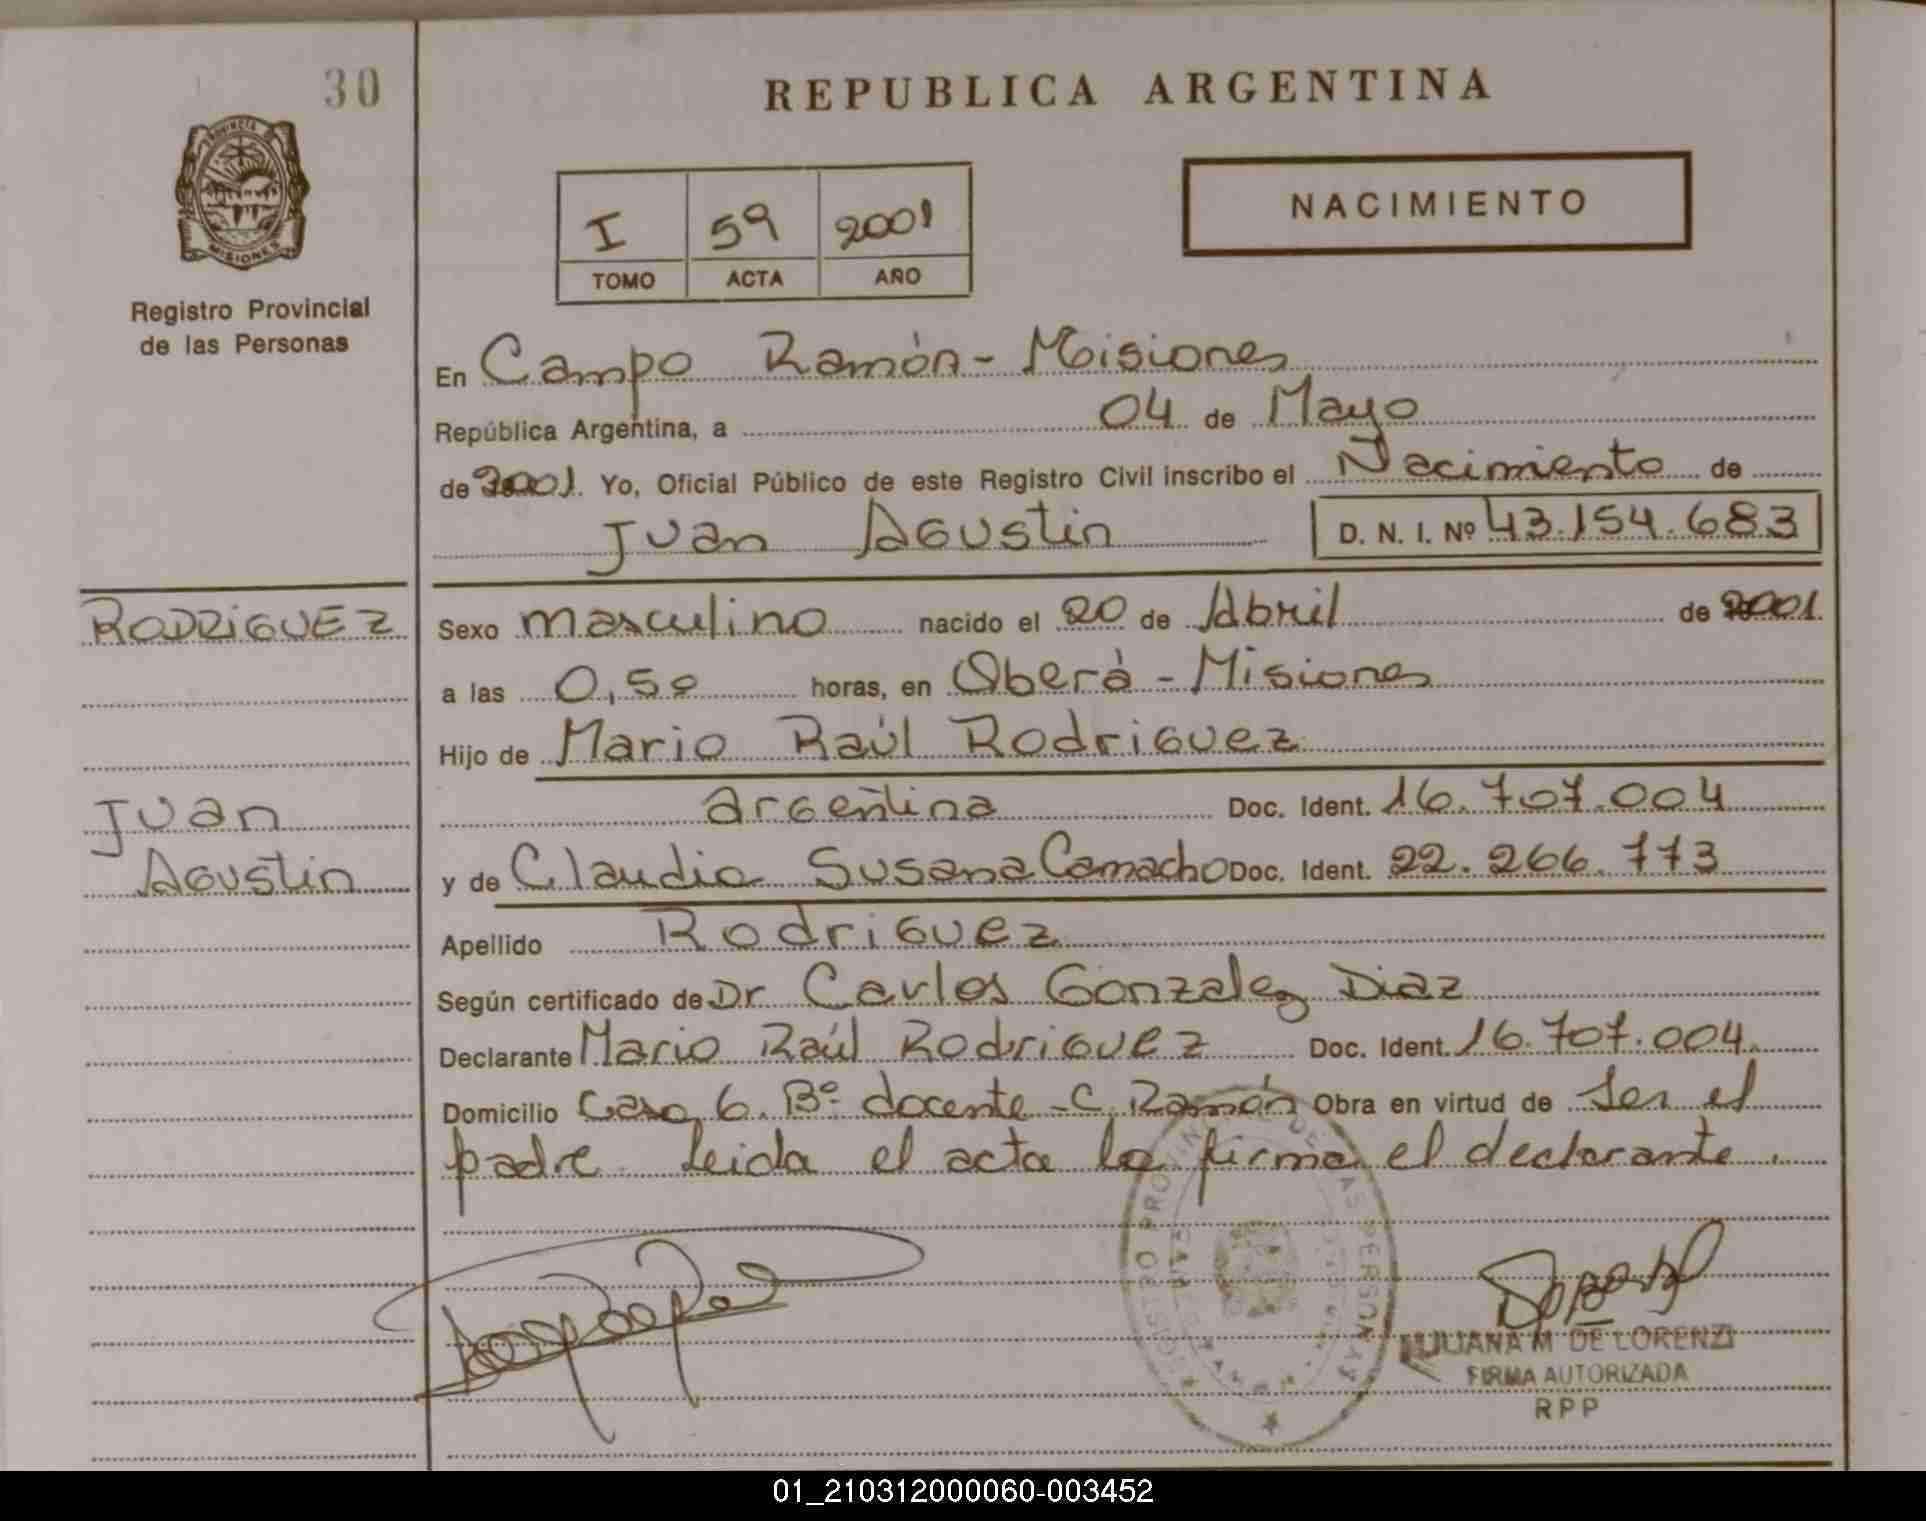 30
REPUBLICA ARGENTINA
PROVINCIA DE
MISIONES
Registro Provincial
de las Personas
NACIMIENTO
I 59 2001
TOMO ACTA AÑO
En Campo Ramón - Misiones
República Argentina, a 04 de Mayo
de 2001. Yo, Oficial Público de este Registro Civil inscribo el Nacimiento de
Juan Agustin D. N. I. Nº 43.154.683
RODRIGUEZ
Juan
Agustin
Sexo masculino nacido el 20 de Abril de 2001.
a las 0,50 horas, en Oberá - Misiones
Hijo de Mario Raúl Rodriguez
argentina Doc. Ident. 16.707.004
y de Claudia Susana Camacho Doc. Ident. 22.266.773
Apellido Rodriguez
Según certificado de Dr Carlos Gonzalez Diaz
Declarante Mario Raúl Rodriguez Doc. Ident. 16.707.004
Domicilio Casa 6. Bº docente - C. Ramón Obra en virtud de ser el
padre. Leida el acta la firma el declarante.
REGISTRO PROVINCIAL DE LAS PERSONAS
LILIANA M DE LORENZI
FIRMA AUTORIZADA
RPP
01_210312000060-003452